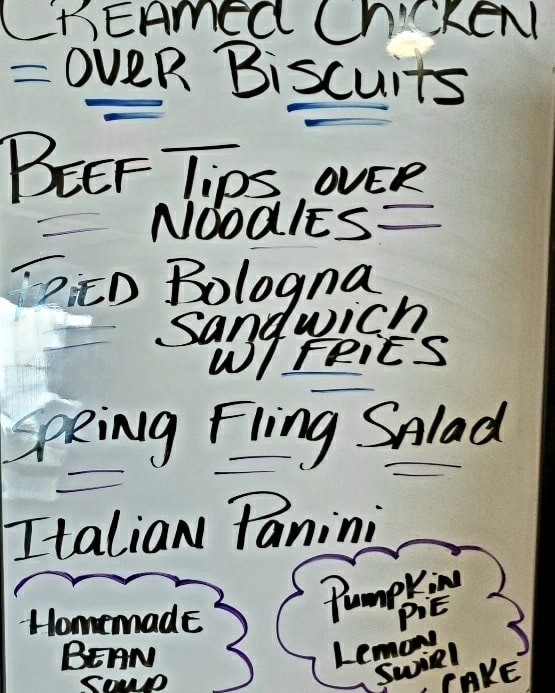 CREAMED CHICKEN
OVER BISCUITS
BEEF TIPS OVER
NOODLES
FRIED Bologna
SANdwich
W/ FRIES
SPRING Fling SAlad
ItaliaN Panini
HomemadE
BEAN
Soup
PumpKiN
PiE
LEmoN
SwiRl
CAKE